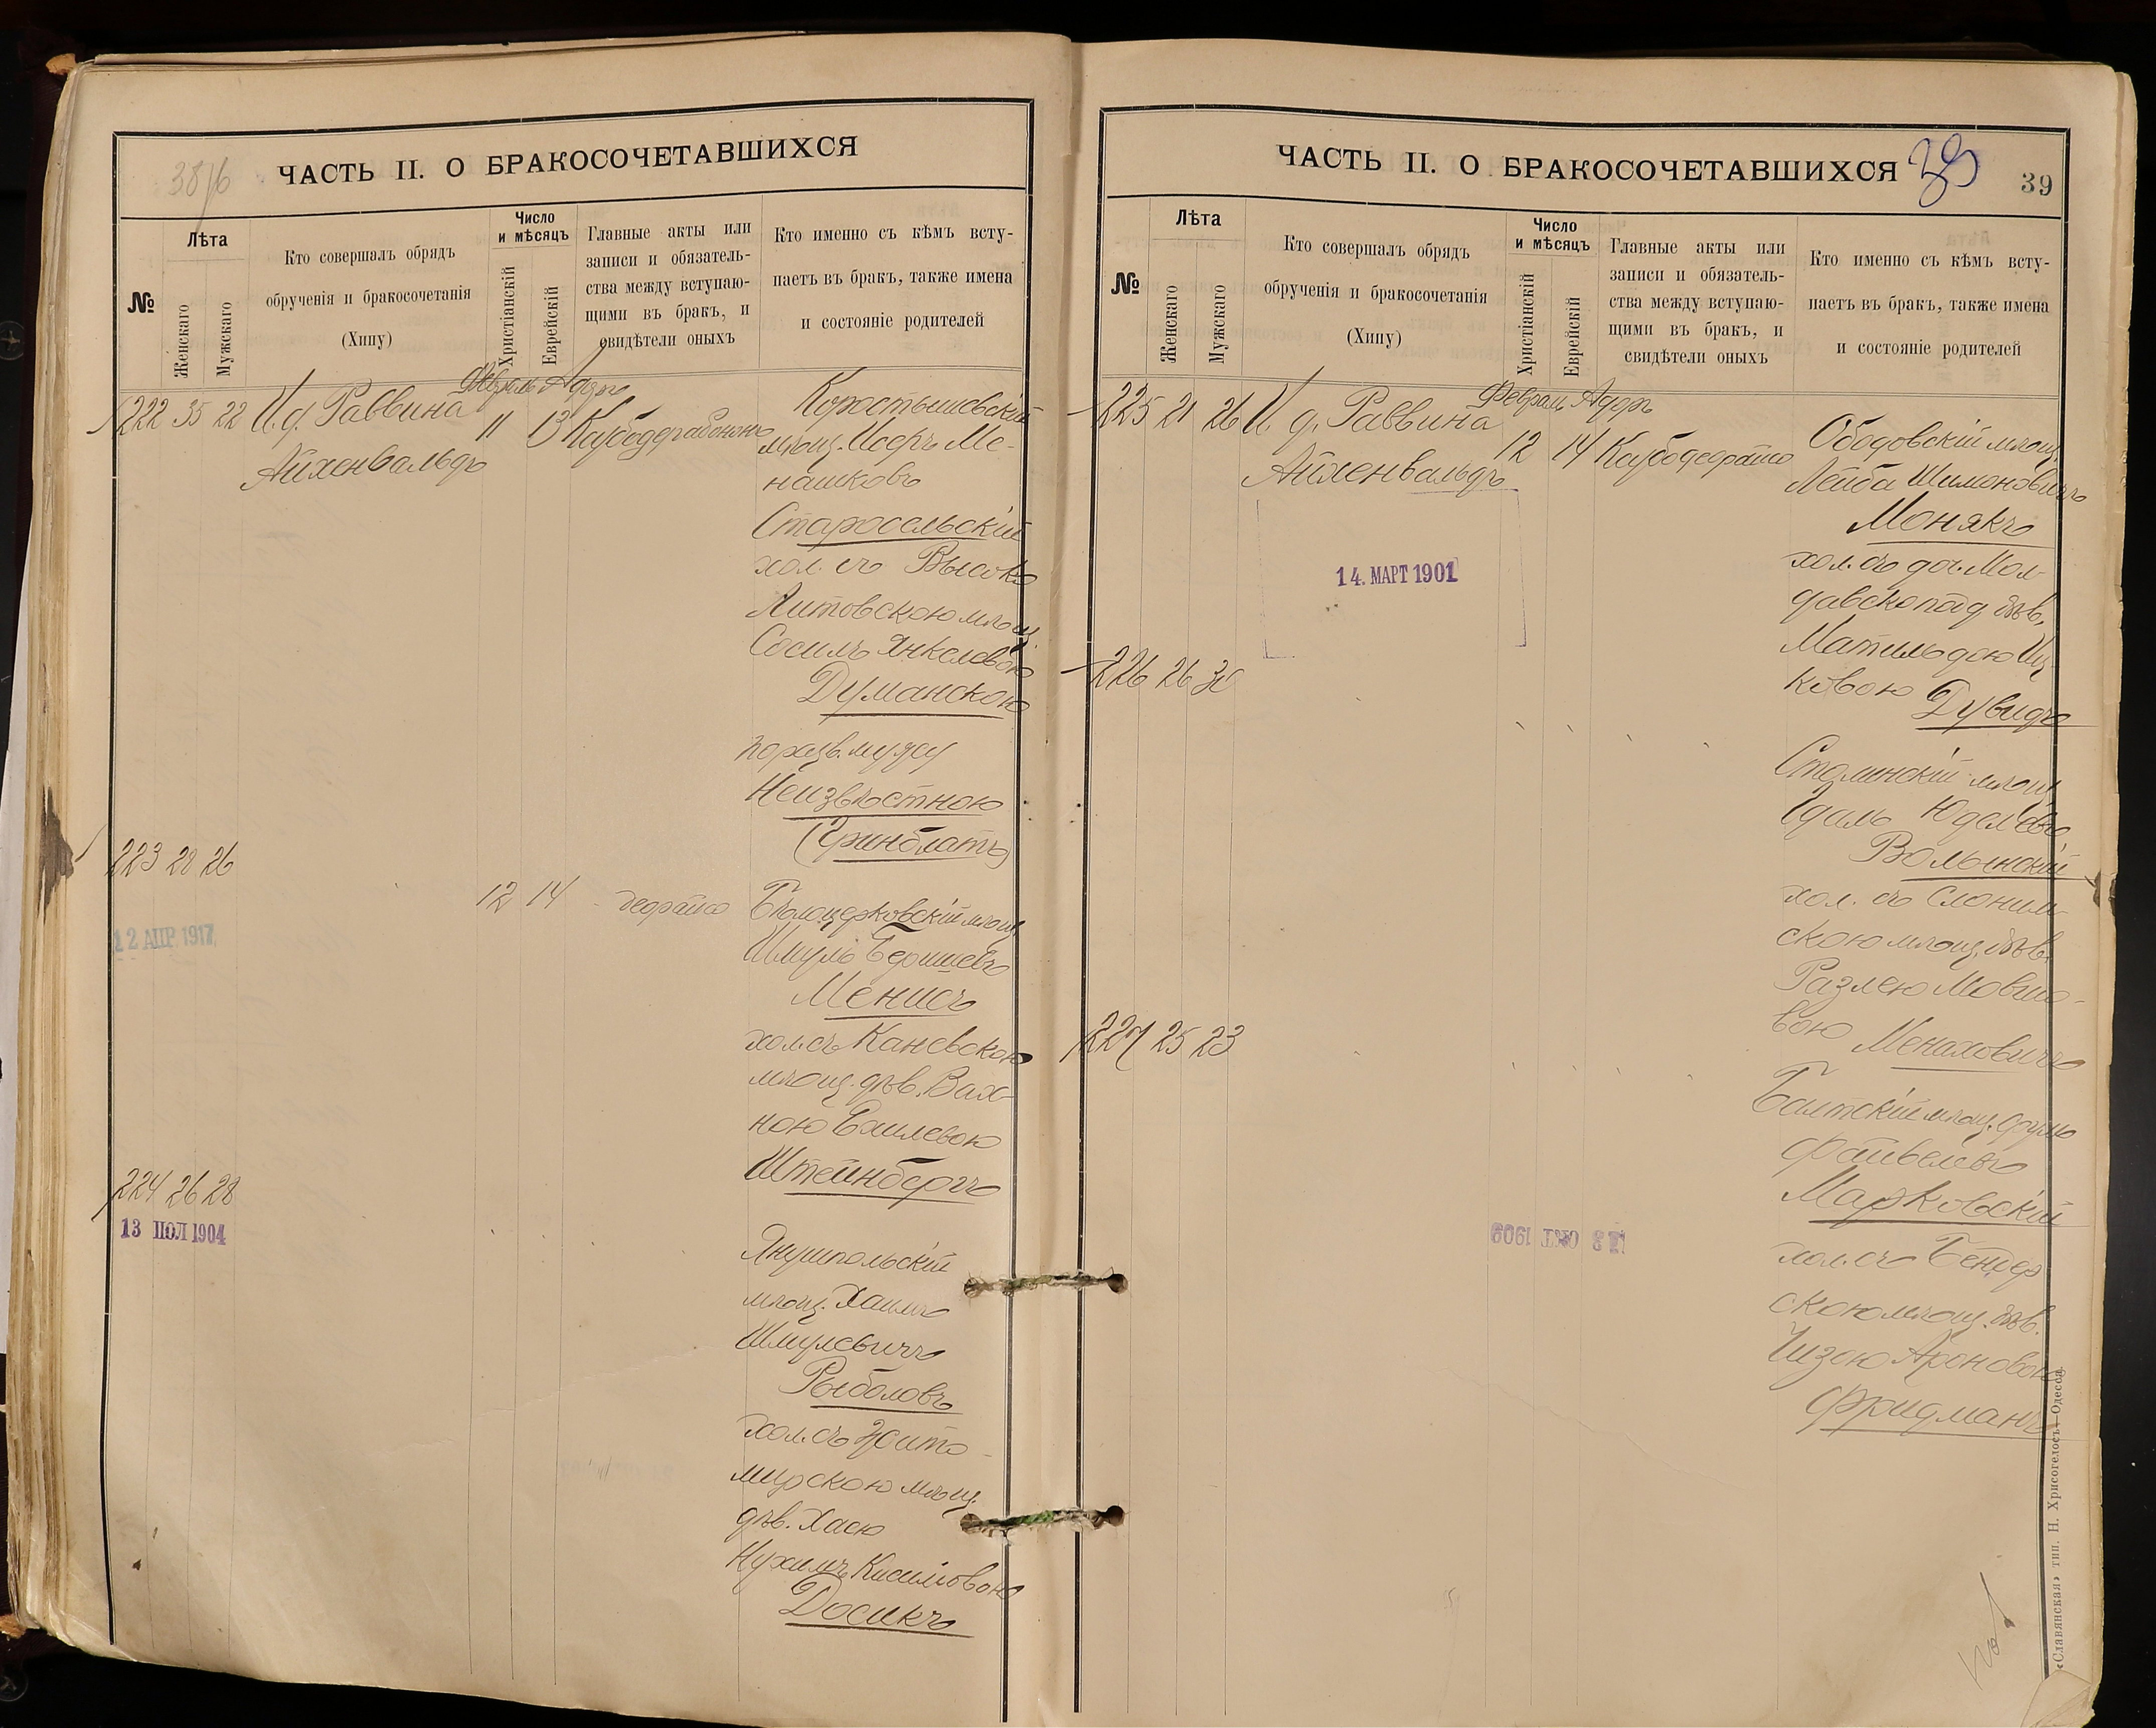 38/б
ЧАСТЬ II. О БРАКОСОЧЕТАВШИХСЯ
№
Лѣта
Женскаго
Мужскаго
Кто совершалъ обрядъ
обрученія и бракосочетанія
(Хипу)
Число
и мѣсяцъ
Христіанскій
Еврейскій
Главные акты или
записи и обязатель-
ства между вступаю-
щими въ бракъ, и
свидѣтели оныхъ
Кто именно съ кѣмъ всту-
паетъ въ бракъ, также имена
и состояніе родителей
Февраль Адаръ
222 35 22 И. д. Раввина 11 13
Айхенвальдъ
Коростышевскій
мѣщ. Исеръ Ме-
нашковъ
Старосельскій
хол. съ Высоко
Литовскою мѣщ.
Сосилъ Янкелевою
Думанскою
по разв. мужу
Неизвѣстною
(Гринблатъ)
223 28 26
12 АПР 1917
12 14
Бѣлоцерковскій мѣщ.
Шмуль Беришевъ
Менисъ
хол. съ Каневскою
мѣщ. дѣв. Вах-
ною Ехилевою
Штейнбергъ
224 26 28
13 ІЮЛ 1904
Янушпольскій
мѣщ. Хаимъ
Шмулевичъ
Рыболовъ
хол. съ Жито-
мирскою мѣщ.
дѣв. Хаею
Нухимъ Кисилiовою
Досикъ
ЧАСТЬ II. О БРАКОСОЧЕТАВШИХСЯ
39
39
№
Лѣта
Женскаго
Мужскаго
Кто совершалъ обрядъ
обрученія и бракосочетанія
(Хипу)
Число
и мѣсяцъ
Христіанскій
Еврейскій
Главные акты или
записи и обязатель-
ства между вступаю-
щими въ бракъ, и
свидѣтели оныхъ
Кто именно съ кѣмъ всту-
паетъ въ бракъ, также имена
и состояніе родителей
Февраль Адаръ
225 21 26 И. д. Раввина 12 14
Айхенвальдъ
14. МАРТ 1901
Ободовскій мѣщ.
Лейба Шимоновичъ
Монякъ
хол. съ доч. Мол-
давскопод. дѣв.
Матильдою Иц-
ковою Дувидъ
226 26 30
Столинскій мѣщ.
Гдаль Юделевъ
Волынскій
хол. съ Слоним-
скою мѣщ. дѣв.
Разлею Мовшо-
вою Менаховичъ
227 25 23
13 ОКТ 1909
Балтскій мѣщ.
Файвелевъ
Марковскій
хол. съ Бендер
скою мѣщ. дѣв.
Чизою Ароновою
Фридманъ
«Славянская» тип. Н. Хрисогелосъ—Одесса.